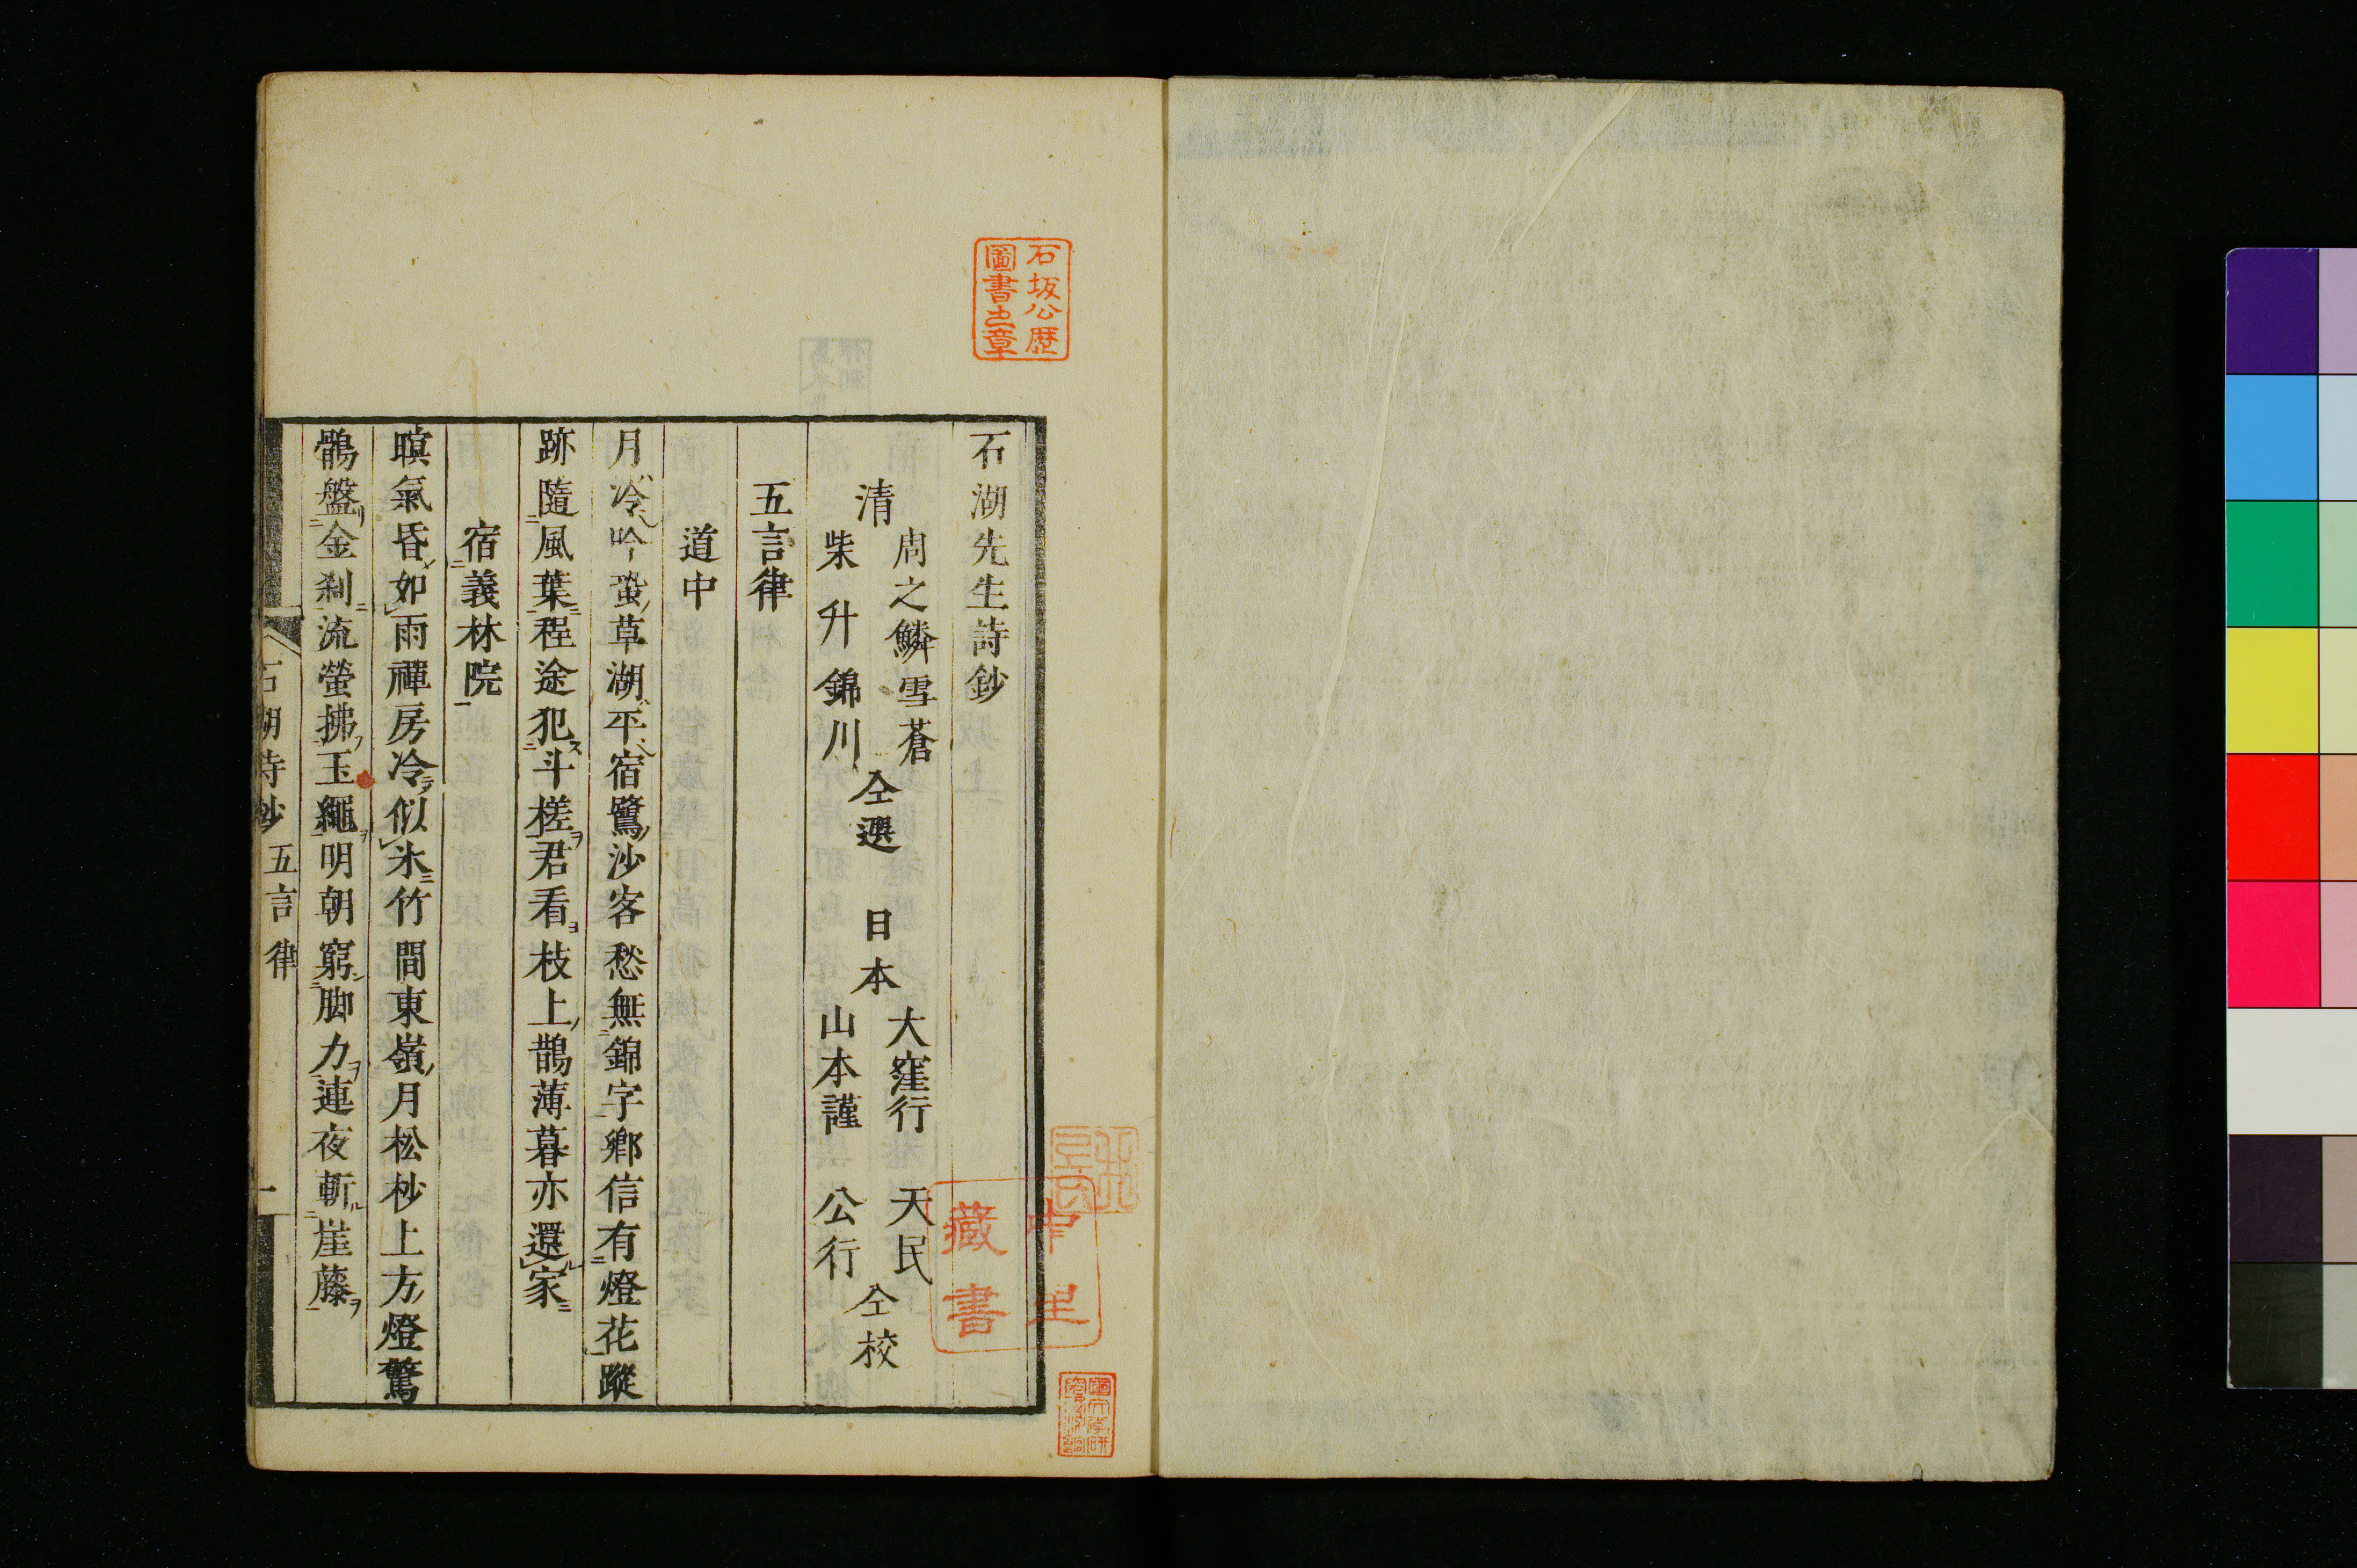 石湖先生詩鈔
清
周之鱗雪蒼
柴升錦川
仝選
日本
大窪行 天民
山本謹 公行
仝校
五言律
道中
月冷吟蛩草湖平宿鷺沙客愁無錦字鄉信有燈花蹤
跡隨風葉程途犯斗槎君看枝上鵲薄暮亦還家
宿義林院
暝氣昏如雨禪房冷似氷竹間東嶺月松杪上方燈驚
鶻盤金刹流螢拂玉繩明朝窮脚力連夜斬崖藤
石湖詩鈔 五言律 一
石坂公歷
圖書之章
中里
藏書